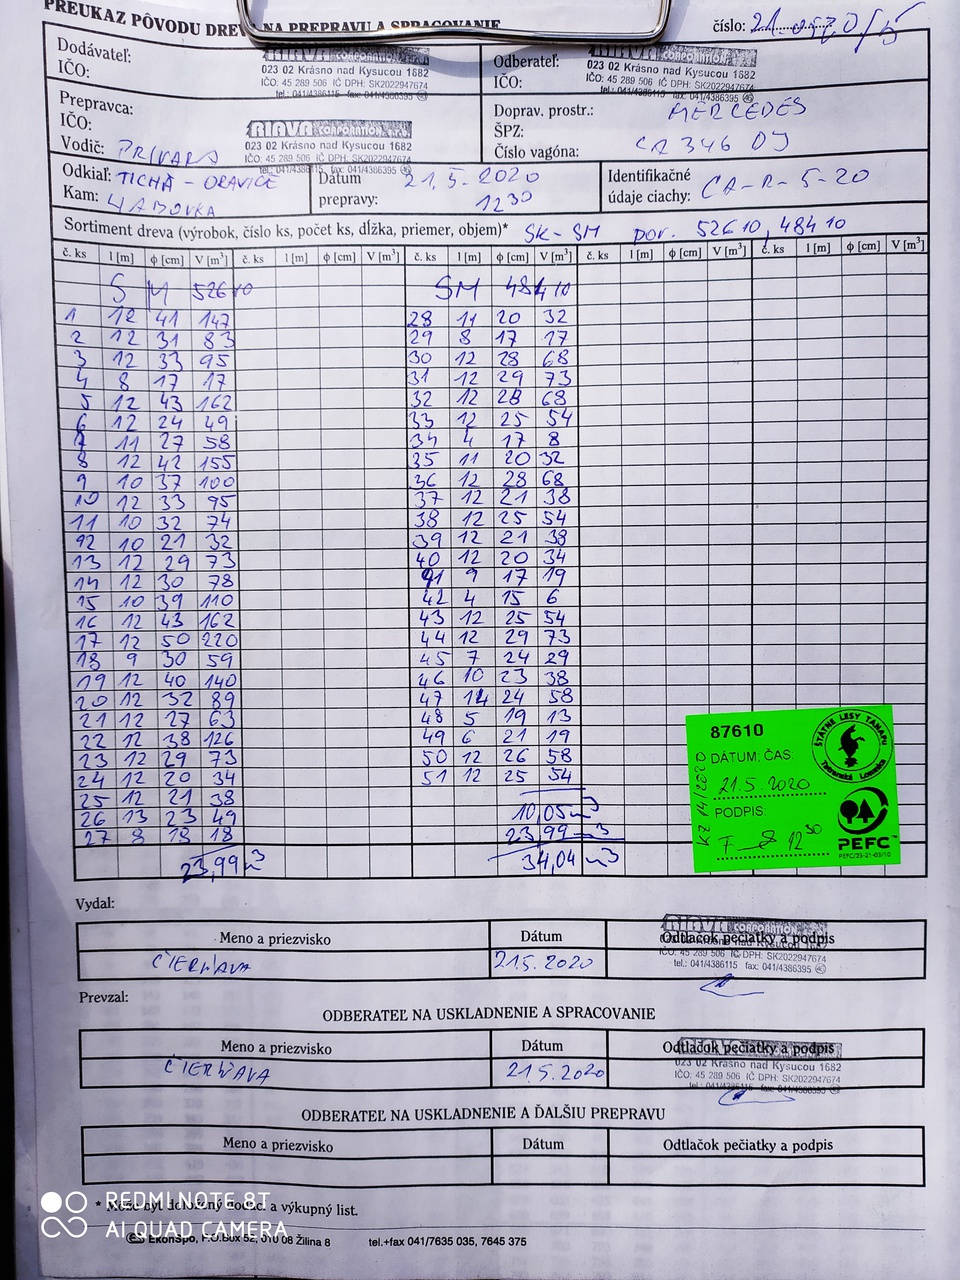 PREUKAZ PÔVODU DREVA NA PREPRAVU A SPRACOVANIE
číslo:
Dodávateľ:
IČO:
RIAVA CORPORATION s.r.o.
023 02 Krásno nad Kysucou 1682
IČO: 45 289 506 IČ DPH: SK2022947674
tel.: 041/4386115 fax: 041/4386395
Odberateľ:
IČO:
RIAVA CORPORATION
023 02 Krásno nad Kysucou 1682
IČO: 45 289 506 IČ DPH: SK2022947674
tel.: 041/4386115 fax: 041/4386395
Prepravca:
IČO:
Vodič: PRIVARA
RIAVA CORPORATION s.r.o.
023 02 Krásno nad Kysucou 1682
IČO: 45 289 506 IČ DPH: SK2022947674
tel.: 041/4386115 fax: 041/4386395
Doprav. prostr.: MERCEDES
ŠPZ:
Číslo vagóna: CA 346 DJ
Odkiaľ: TICHÁ - ORAVICE
Kam: HABOVKA
Dátum prepravy: 21.5.2020
12 30
Identifikačné
údaje ciachy: CA-R-5-20
Sortiment dreva (výrobok, číslo ks, počet ks, dĺžka, priemer, objem)* SK-SM por. 52610, 48410
č. ks l [m] φ [cm] V [m³] č. ks l [m] φ [cm] V [m³] č. ks l [m] φ [cm] V [m³] č. ks l [m] φ [cm] V [m³] č. ks l [m] φ [cm] V [m³]
SM 52610 SM 48410
1 12 41 147 28 11 20 32
2 12 31 83 29 8 17 17
3 12 33 95 30 12 28 68
4 8 17 17 31 12 29 73
5 12 43 162 32 12 28 68
6 12 24 49 33 12 25 54
7 11 27 58 34 4 17 8
8 12 42 155 35 11 20 32
9 10 37 100 36 12 28 68
10 12 33 95 37 12 21 38
11 10 32 74 38 12 25 54
12 10 21 32 39 12 21 38
13 12 29 73 40 12 20 34
14 12 30 78 41 9 17 19
15 10 39 110 42 4 15 6
16 12 43 162 43 12 25 54
17 12 50 220 44 12 29 73
18 9 30 59 45 7 24 29
19 12 40 140 46 10 23 38
20 12 32 89 47 14 24 58
21 12 27 63 48 5 19 13
22 12 38 126 49 6 21 19
23 12 29 73 50 12 26 58
24 12 20 34 51 12 25 54
25 12 21 38
26 13 23 49 10,05 m³
27 8 18 18 23,99 m³
23,99 m³ 34,04 m³
87610
DÁTUM: ČAS:
21.5.2020
PODPIS:
12 30
KZ 14/2020
ŠTÁTNE LESY TANAPU
Tatranská Lomnica
PEFC
PEFC/23-21-03/10
Vydal:
Meno a priezvisko Dátum Odtlačok pečiatky a podpis
ČIERŇAVA 21.5.2020
RIAVA CORPORATION
023 02 Krásno nad Kysucou 1682
IČO: 45 289 506 IČ DPH: SK2022947674
tel.: 041/4386115 fax: 041/4386395
Prevzal:
ODBERATEĽ NA USKLADNENIE A SPRACOVANIE
Meno a priezvisko Dátum Odtlačok pečiatky a podpis
ČIERŇAVA 21.5.2020
023 02 Krásno nad Kysucou 1682
IČO: 45 289 506 IČ DPH: SK2022947674
tel.: 041/4386115 fax: 041/4386395
ODBERATEĽ NA USKLADNENIE A ĎALŠIU PREPRAVU
Meno a priezvisko Dátum Odtlačok pečiatky a podpis
* Môže byť doložený dodac. a výkupný list.
REDMI NOTE 8T
AI QUAD CAMERA
EkonSpo, P.O.Box 52, 010 08 Žilina 8 tel.+fax 041/7635 035, 7645 375